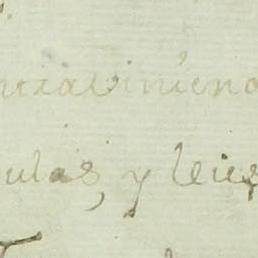 ntraviniend
ulas, y leies